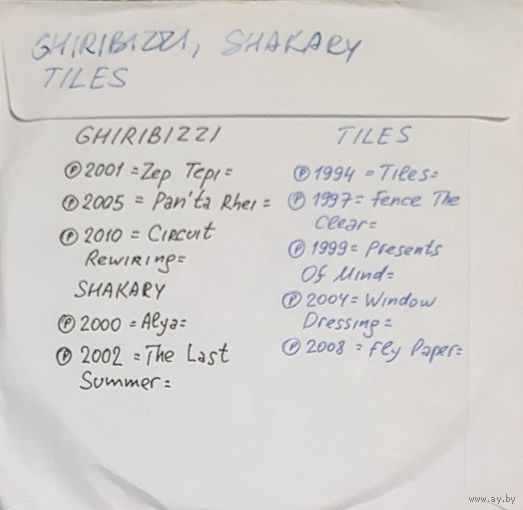 GHIRIBIZZI, SHAKARY
TILES
GHIRIBIZZI
Ⓟ 2001 =Zep Tepi=
Ⓟ 2005 = Pan'ta Rhei =
Ⓟ 2010 = Circuit
Rewiring=
SHAKARY
Ⓟ 2000 =Alya=
Ⓟ 2002 =The Last
Summer=
TILES
Ⓟ 1994 =Tiles=
Ⓟ 1997= Fence The
Clear=
Ⓟ 1999= Presents
Of Mind=
Ⓟ 2004= Window
Dressing=
Ⓟ 2008 =Fly Paper=
www.ay.by